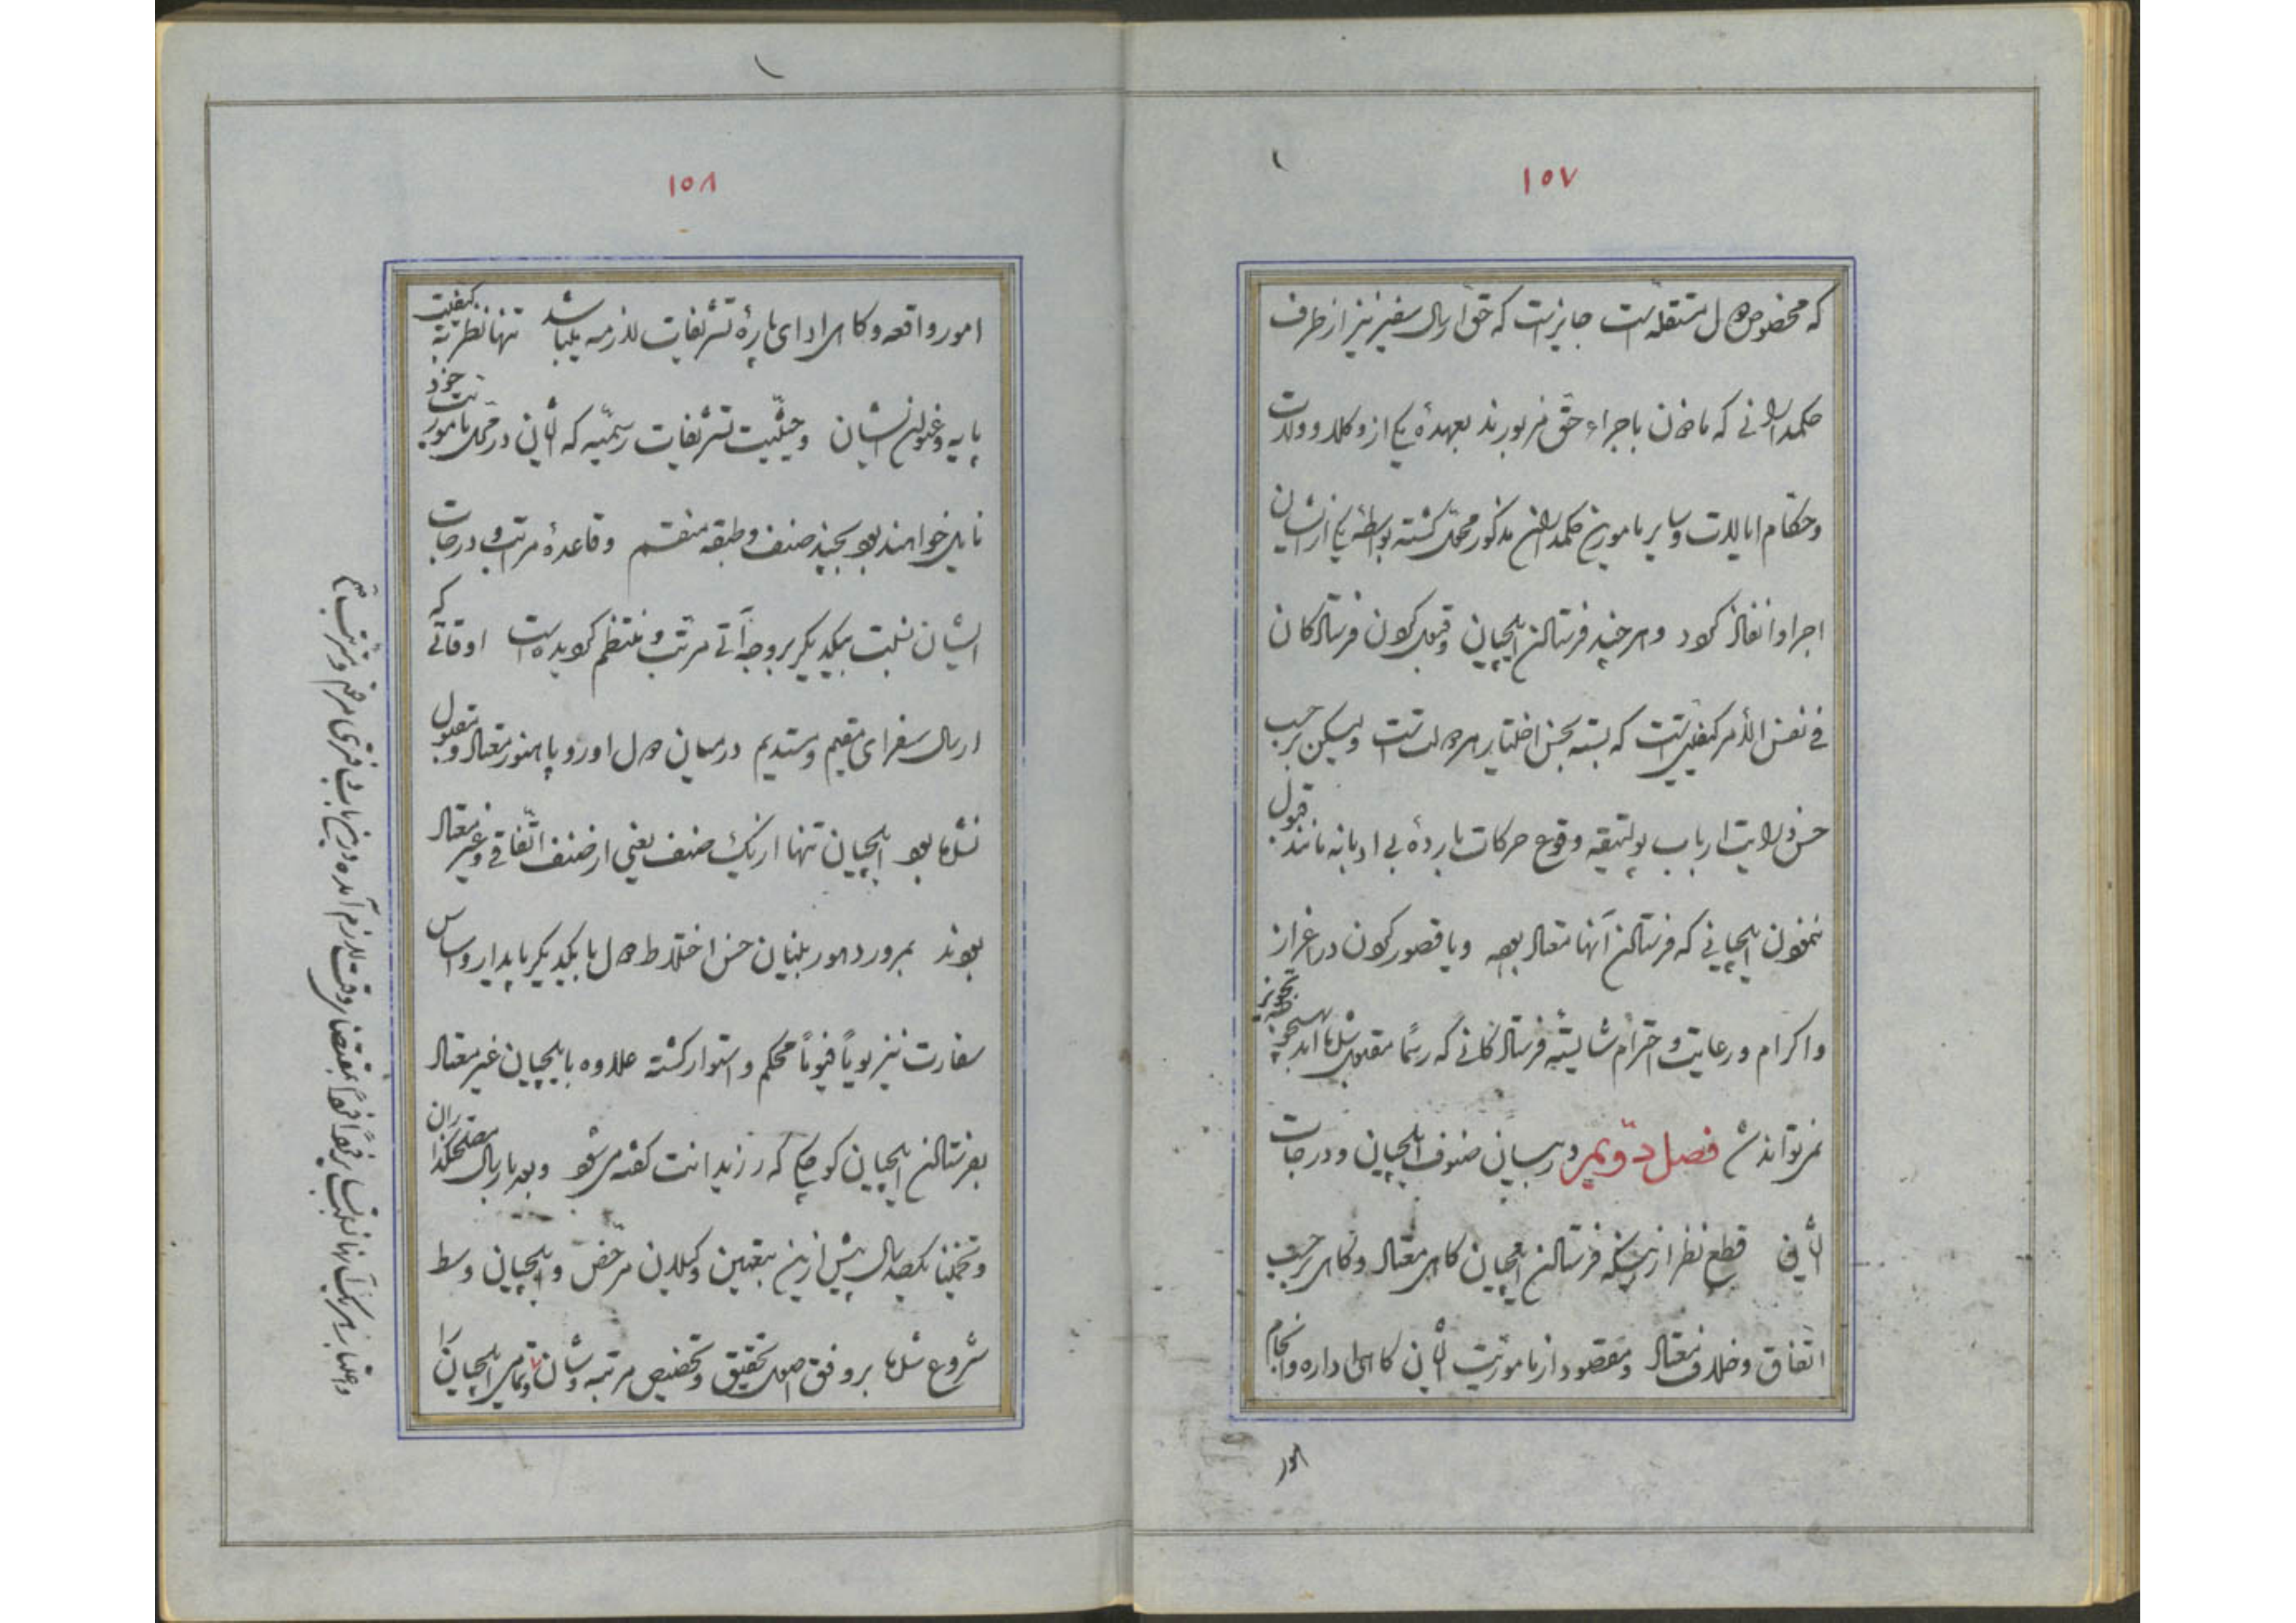 ۱۵۷
که مخصوص دول مستقله است جایز است که حق ارسال سفیر نیز از طرف
حکمدارانی که ماذون باجراء حق مزبورند بعهدهٔ یکی از وکلا و ولات
وحکام ایالات وسایر مامورین حکمداران مذکور محول گشته بواسطهٔ یکی از ایشان
اجرا وانفاذ گردد وهر چند فرستادن ایلچیان وقبول کردن فرستادگان
فی نفس الأمر کیفیتی است که بسته بحسن اختیار هر دولت است ولیکن برحسب
حسن درایت ارباب پولتیقه وقوع حرکات باردهٔ بی ادبانه مانند قبول
ننمودن ایلچیانی که فرستادن آنها معتاد بوده ویا قصور کردن در اعزاز
واکرام ورعایت واحترام شایستهٔ فرستادگانی که رسماً مقبول شده اند
نمیتواند شد فصل دویم در بیان صنوف ایلچیان ودرجات
ایشان قطع نظر از اینکه فرستادن ایلچیان گاهی معتاد وگاهی برحسب
اتفاق وخلاف معتاد ومقصود از ماموریت ایشان گاهی اداره وانجام
امور
۱۵۸
امور واقعه وگاهی ادای پارهٔ تشریفات لازمه میباشد تنها نظر به کیفیت
پایه وعنوان ایشان وحیثیت تشریفات رسمیه که ایشان در محل ماموریت خود
نایل خواهند بود بچند صنف وطبقه منقسم وقاعدهٔ مراتب ودرجات
ایشان نسبت بیکدیگر بر وجه آتی مرتب ومنتظم گردیده است اوقاتی که
ارسال سفرای مقیم ومستدیم در میان دول اوروپا هنوز معتاد ومتداول
نشده بود ایلچیان تنها از یک صنف یعنی از صنف اتفاقی وغیر معتاد
بودند بمرور دهور بنیان حسن اختلاط دول با یکدیگر پایدار واساس
سفارت نیز یوماً فیوماً محکم واستوار گشته علاوه بایلچیان غیر معتاد
بفرستادن ایلچیان کوچک که رزیدانت گفته میشود وبعد بارسال مصلحتگذاران
وتخمیناً یکصد سال پیش ازین بتعیین وکیلان مرخص وایلچیان وسط
شروع شده بر وفق اصول تحقیق وتخصیص مرتبه وشان تمامی ایلچیان را